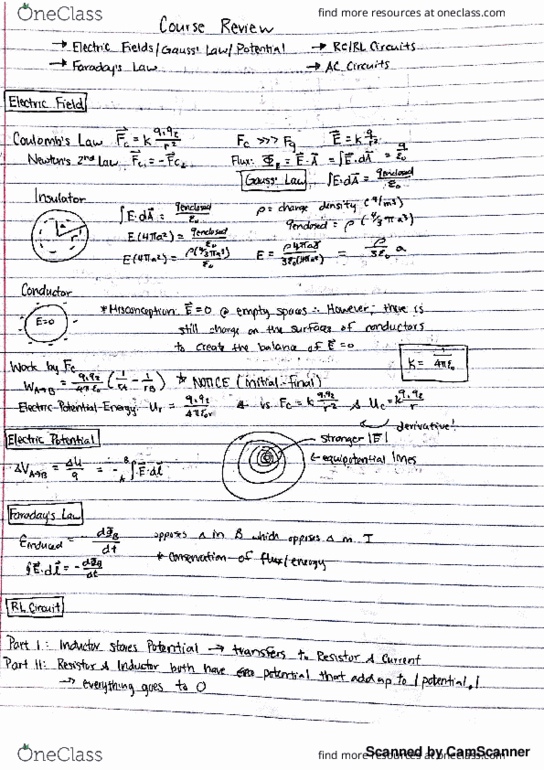 OneClass
find more resources at oneclass.com
Course Review
→ Electric Fields/Gauss' Law/Potential → RC/RL Circuits
→ Faraday's Law → AC Circuits
Electric Field
Coulomb's Law F⃗c = k q₁q₂/r² Fc >>> Fg E⃗ = k q/r²
Newton's 2nd Law F⃗c₁ = -F⃗c₂ Flux: Φ_E = E⃗·A⃗ = ∫E⃗·dA⃗ = q/ε₀
Gauss' Law ∫E·dA = qenclosed/ε₀
Insulator
∫E·dA = qenclosed/ε₀ ρ = charge density (C/m³)
E(4πa²) = qenclosed/ε₀ qenclosed = ρ(4/3 πa³)
E(4πa²) = ρ(4/3πa³)/ε₀ E = ρ4πa³/3ε₀(4πa²) = ρ/3ε₀ a
a
r
Conductor
E=0
*Misconception: E⃗=0 @ empty spaces ∴ However, there is
still charge on the surfaces of conductors
to create the balance of E⃗=0
k = 1/4πε₀
Work by Fc
W A→B = q₁q₂/4πε₀ (1/rA - 1/rB) * NOTICE (initial-final)
Electric Potential Energy: Ur = q₁q₂/4πε₀r vs Fc = k q₁q₂/r² & Uc = k q₁q₂/r
derivative!
Electric Potential
stronger |E|
ΔV A→B = ΔU/q = -∫E⃗·dl⃗
equipotential lines
Faraday's Law
Ɛinduced = -dΦB/dt opposes Δ in B which opposes Δ in I
* conservation of flux/energy
∮E⃗·dl⃗ = -dΦB/dt
RL Circuit
Part I: Inductor stores Potential → transfers to Resistor & Current
Part II: Resistor & Inductor both have potential that adds up to |potential|
→ everything goes to 0
OneClass
find more resources at oneclass.com
Scanned by CamScanner